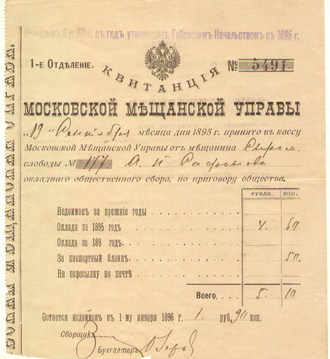 въ годъ утвержден. Губернским Начальствомъ въ 1895 г.
1-е Отдѣленіе.
КВИТАНЦІЯ
№ 5491
МОСКОВСКОЙ МѢЩАНСКОЙ УПРАВЫ
„19" Сентября мѣсяца дня 1895 г. принято въ кассу
Московской Мѣщанской Управы отъ мѣщанина
слободы № 177 А. П.
окладного общественнаго сбора, по приговору общества.
РУБЛИ. КОП.
Недоимокъ за прежніе годы
Оклада за 1895 годъ 4. 60
Оклада за 189 годъ
За паспортный бланкъ 50.
На пересылку по почтѣ
Всего 5. 10
Остается недоимокъ къ 1-му января 1896 г. 1 руб. 90 коп.
Сборщикъ
Бухгалтеръ